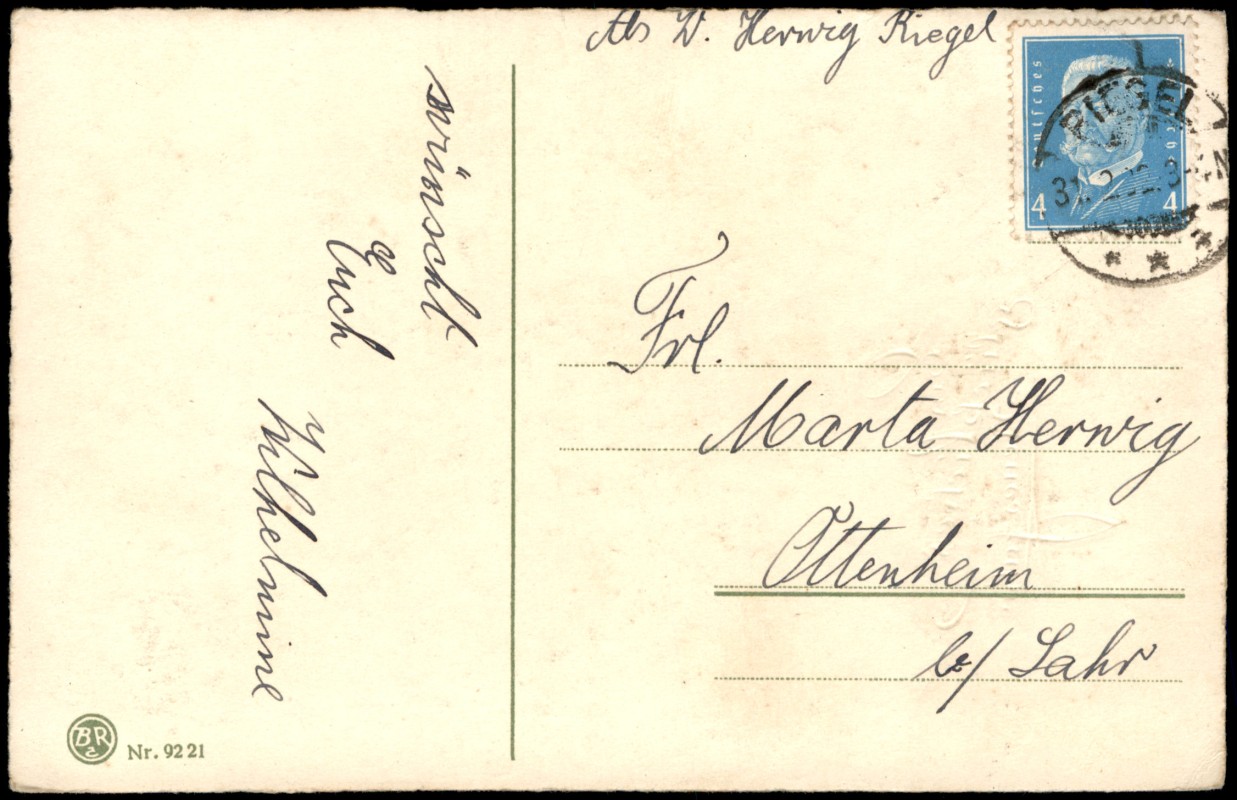 Abs W. Herwig Riegel
wünscht
Euch
Wilhelmine
Deutsches
4 4
RIEGEL
Frl.
Marta Herwig
Ottenheim
b/ Lahr
BR
Nr. 9221